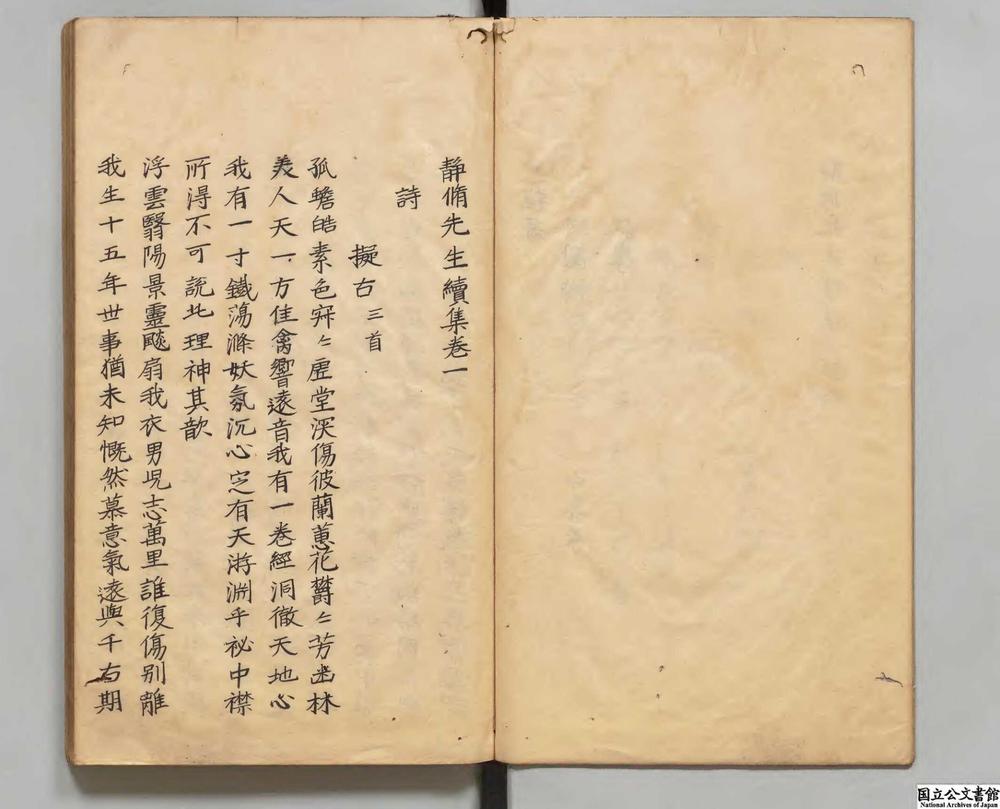 靜脩先生續集卷一
詩
擬古三首
孤蟾皓素色穽〻虛堂深傷彼蘭蕙花欝〻芳幽林
美人天一方佳禽響遠音我有一卷經洞徹天地心
我有一寸鐵蕩滌妖氛沉心空有天游淵乎祕中襟
所得不可説此理神其歆
浮雲翳陽景靈飈扇我衣男児志萬里誰復傷别離
我生十五年世事猶未知慨然慕意氣遠與千古期
国立公文書館
National Archives of Japan